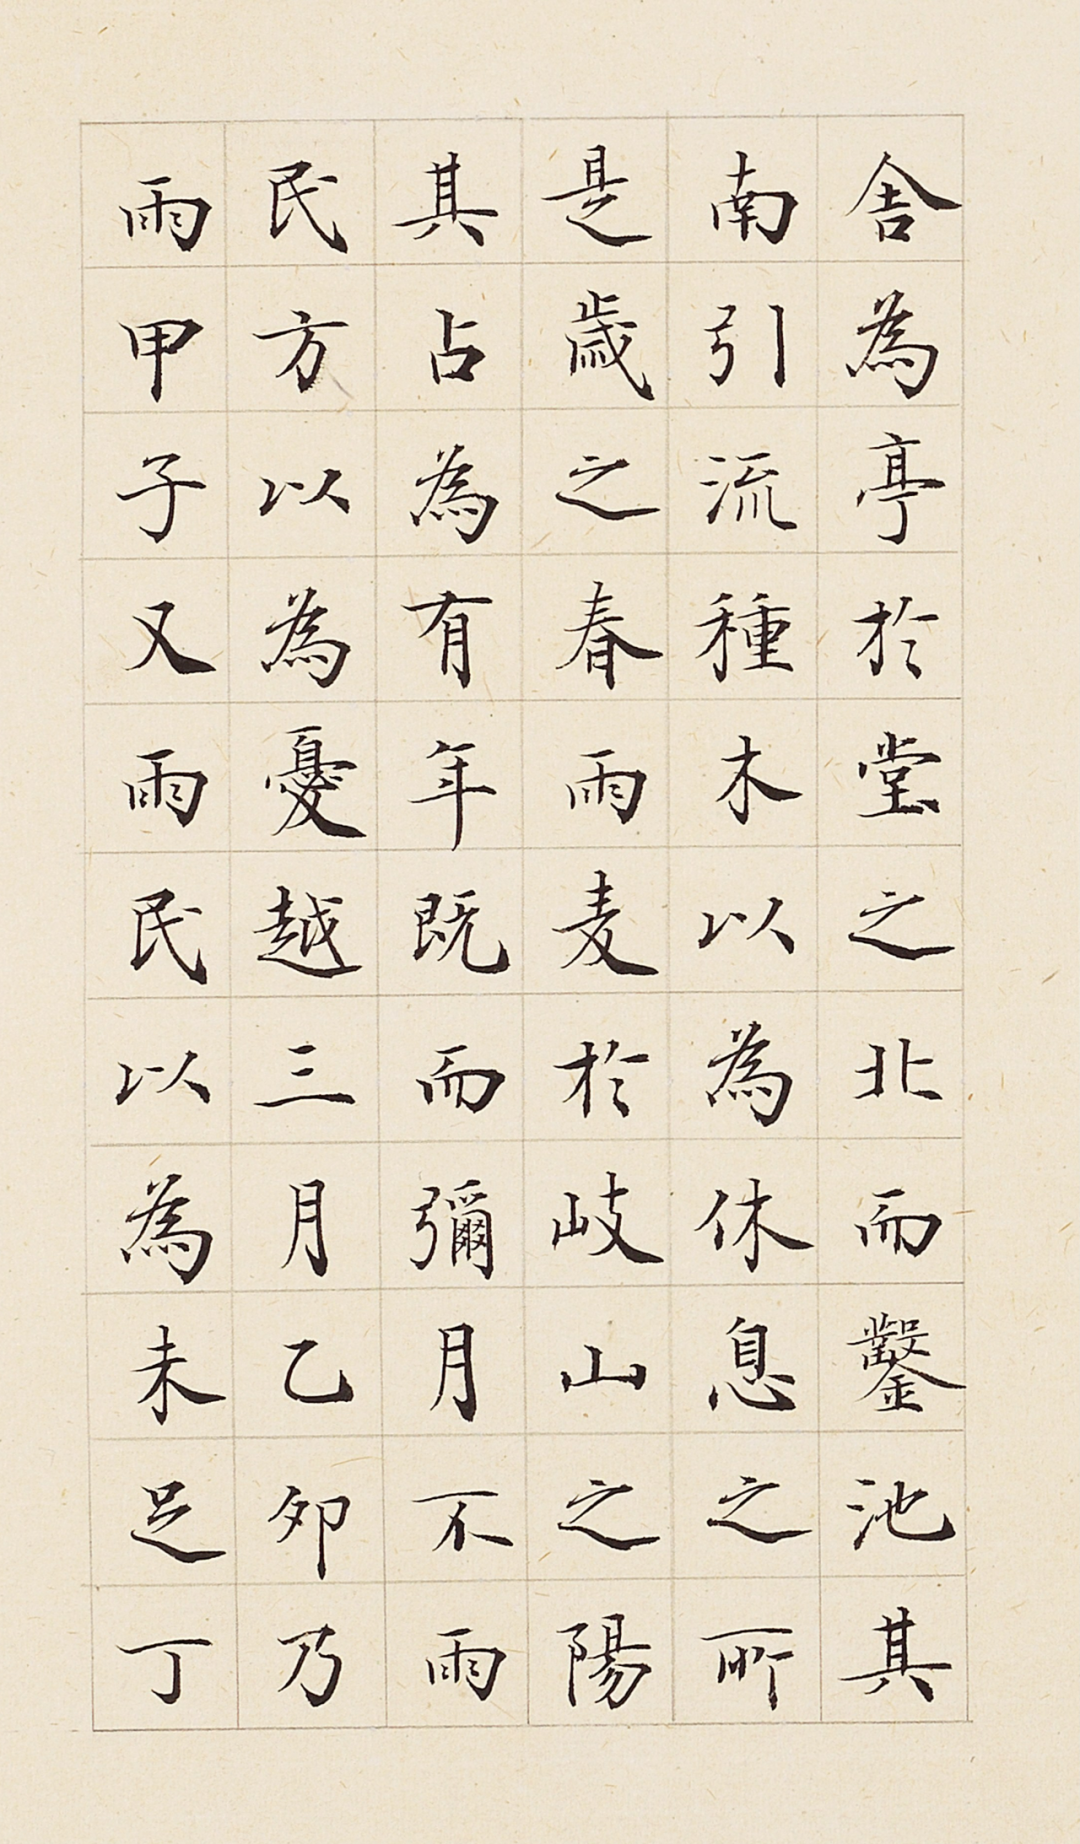 舍為亭於堂之北而鑿池其
南引流種木以為休息之所
是歲之春雨麦於岐山之陽
其占為有年既而彌月不雨
民方以為憂越三月乙卯乃
雨甲子又雨民以為未足丁